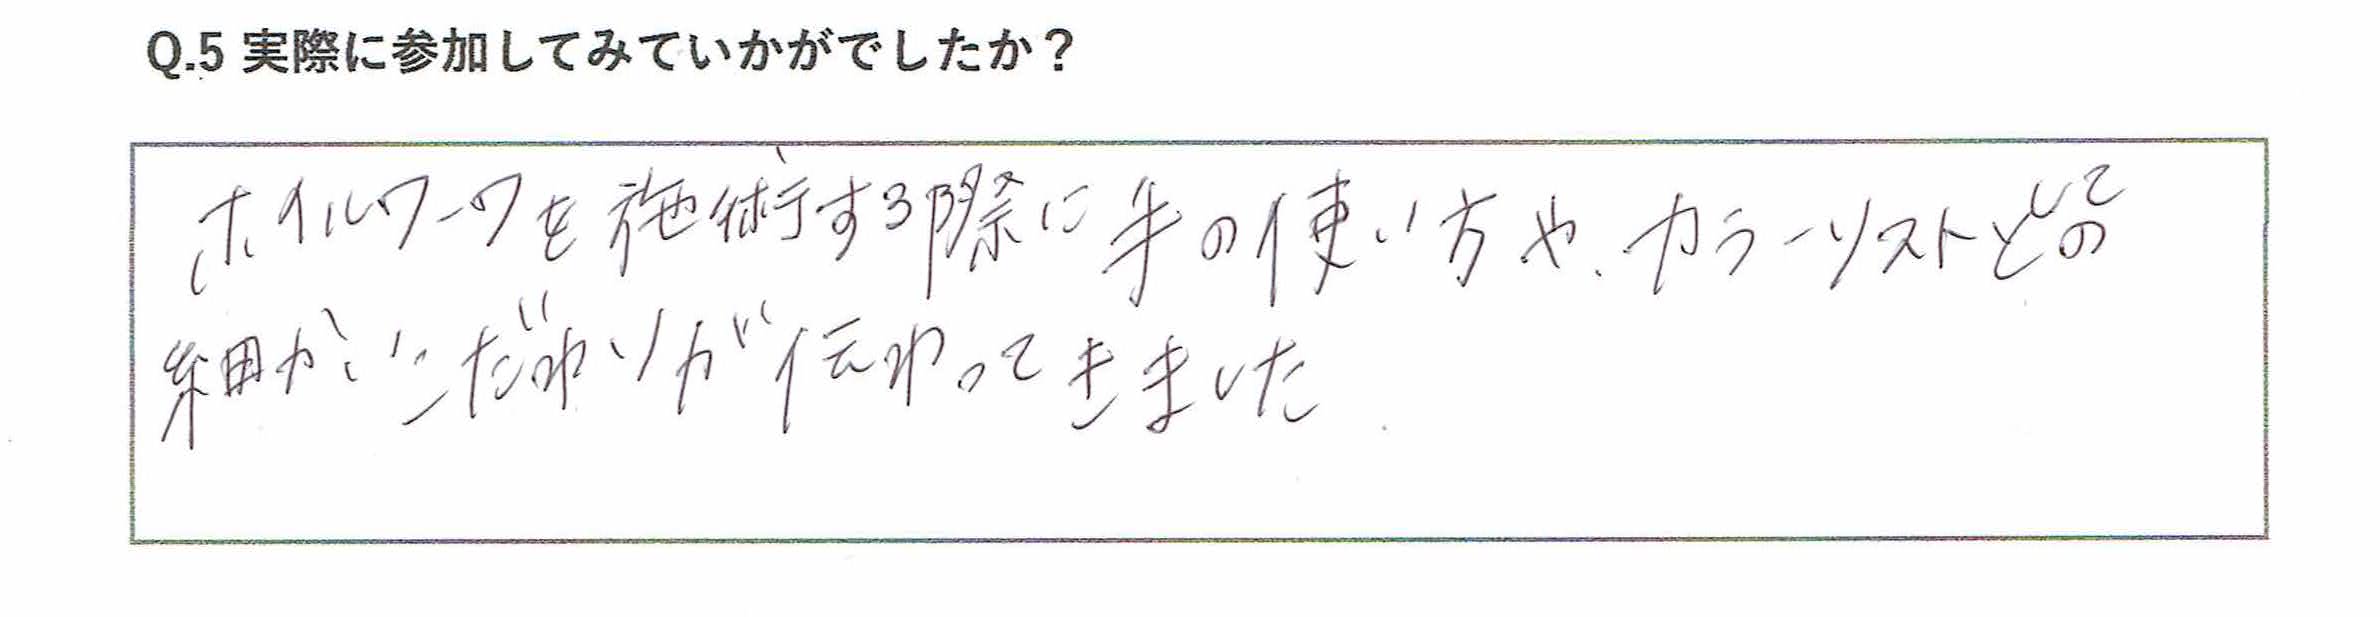 Q.5 実際に参加してみていかがでしたか？
ホイルワークを施術する際に手の使い方や、カラーリストとしての
細かいこだわりが伝わってきました.